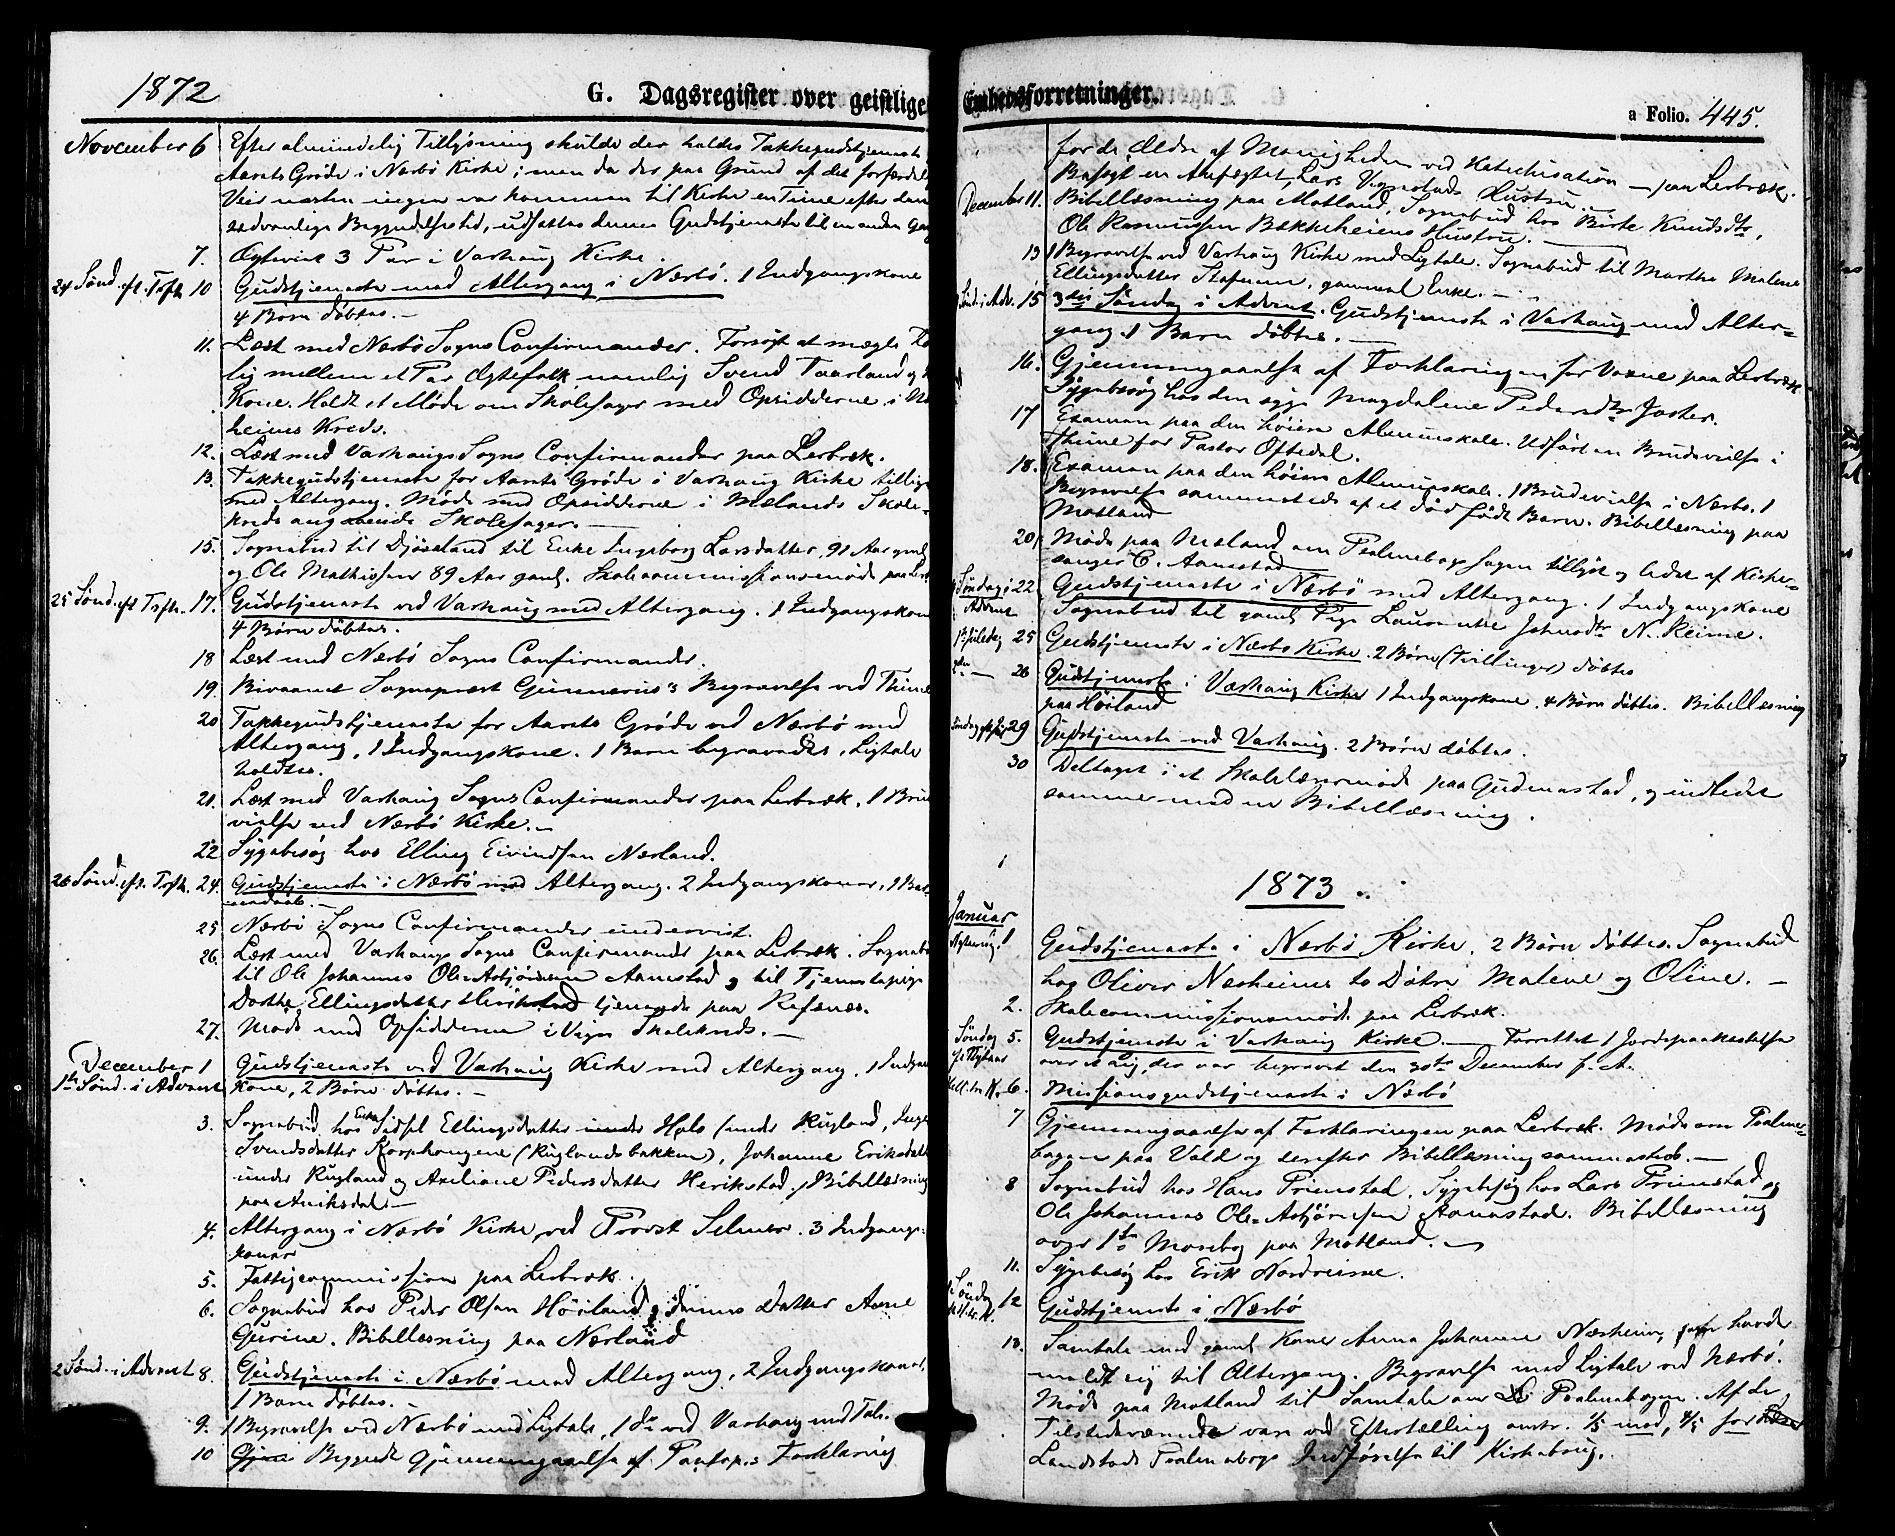 1872
G. Dagsregister over geistlige
November 6 Efter almindelig Tillysning skulde der holdes Takkegudstjeneste
Aarets Grøde i Nærbø Kirke; men da der paa Grund af det forfærdel
Veir næsten ingen var kommen til Kirke en Time efter den
sædvanlige Begyndelsestid, udsattes denne Gudstjeneste til en anden Gang
7. Ægteviet 3 Par i Varhaug Kirke.
24 Sønd. eft. Trfth 10 Gudstjeneste med Altergang i Nærbø. 1 Indgangskone
4 Børn døbtes. —
11. Læst med Nærbø Sogns Confirmander. Forsøgt at mægle
lig mellem et Par Ægtefolk, namlig Svend Taarland og
Kone. Holdt et Møde om Skolesager med Opsidderne i
heims Kreds.
12. Læst med Varhaugs Sogns Confirmander paa Lerbræk.
13. Takkegudstjeneste for Aarets Grøde i Varhaug Kirke tillige
med Altergang. Møde med Opsidderne i Mælands Skole-
kreds angaaende Skolesager. —
15. Sognebud til Djøseland til Enke Ingeborg Larsdatter, 91 Aar gml
og Ole Mathissen 89 Aar gaml. Skolecommissionsmøde paa
25 Sønd. eft Trfth. 17. Gudstjeneste ved Varhaug med Altergang. 1 Indgangskone
4 Børn døbtes.
18 Læst med Nærbø Sogns Confirmander.
19. Bivaanet Sognepræst Gunnerius's Begravelse ved Thime
20 Takkegudstjeneste for Aarets Grøde ved Nærbø med
Altergang, 1 Indgangskone. 1 Barn begravedes, Ligtale
holdtes.
21. Læst med Varhaug Sogns Confirmander paa Lerbræk, 1 Bru
vielse ved Nærbø Kirke. —
22 Sygebesøg hos Elling Eivindsen Nærland.
26 Sønd. eft. Trfth. 24. Gudstjeneste i Nærbø med Altergang. 2 Indgangskoner, 1 Bar

25 Nærbø Sogns Confirmander undervist.
26. Læst med Varhaug Sogns Confirmander paa Lerbræk. Sognebud
til Ole Johannes Ole-Asbjørnsen Aanestad og til Tjenestepige
Dorthe Ellingsdatter tjenende paa Refsnæs.
27. Møde med Opsidderne i Vigre Skolekreds. —
December 1 Gudstjeneste ved Varhaug Kirke med Altergang, 1 Indgan
1ste Sønd. i Advent Kone, 2 Børn døbtes. —
3. Sognebud hos Enke Sidsel Ellingsdatter under Hole (under Rugland, Inge
Svendsdatter Korphaugene (Ruglandsbakken), Johanne Eriksdatt
under Rugland og Axeliane Pedersdatter Herikstad, Bibellæsning
paa Aniksdal. —
4. Altergang i Nærbø Kirke ved Provst Selmer. 3 Indgangs-
koner
5. Fattigcommission paa Lerbræk.
6. Sognebud hos Peder Olsen Høiland og dennes Datter Anne
Gurine. Bibellæsning paa Nærland
2 Sønd. i Advent 8. Gudstjeneste i Nærbø med Altergang, 2 Indgangskoner,
1 Barn døbtes. —
9. 1 Begravelse ved Nærbø med Ligtale, 1 do ved Varhaug med Tale.
10 Begyndt Gjennemgaaelse af Pontop.s Forklaring
Embedsforretninger.
a Folio. 445.
for de Ældre af Menigheden ved Katechisation — paa Lerbræk.
Besøgt en Anfægtet, Lars Vignestads Hustru.
December 11. Bibellæsning paa Motland, Sognebud hos Birte Knudsdtr,
Ole Rasmussen Bakkeheiens Hustru. —
13 1 Begravelse ved Varhaug Kirke med Ligtale. Sognebud til Marthe Malene
Ellingsdatter Stafnem, gammel Enke. —
Sønd. i Adv. 15 3die Søndag i Advent. Gudstjeneste i Varhaug med Alter-
gang. 1 Barn døbtes. —
16. Gjennemgaaelse af Forklaringen for Voxne paa Lerbræk
Sygebesøg hos den syge Magdalene Pedersdtr Joster.
17 Examen paa den høiere Almueskole. Udført en Brudevielse i
Thime for Pastor Oftedal.
18. Examen paa den høiere Almueskole. 1 Brudevielse i Nærbø. 1
Begravelse sammesteds af et dødfødt Barn. Bibellæsning paa
Motland
20. Møde paa Mæland om Psalmebogssagen tillyst og ledet af Kirke-
sanger C. Aanestad
Søndag i Advent 22 Gudstjeneste i Nærbø med Altergang. 1 Indgangskone
Sognebud til gamle Pige Laurentse Johnsdtr N. Reime.
1 Juledag 25 Gudstjeneste i Nærbø Kirke. 2 Børn (Tvillinger) døbtes
2den — 26 Gudstjeneste i Varhaug Kirke 1 Indgangskone. 4 Børn døbtes. Bibellæsning
paa Høiland
Søndag eft Jul 29 Gudstjeneste ved Varhaug. 2 Børn døbtes.
30 Deltaget i et Skolelærermøde paa Gudmestad, og indledet
samme med en Bibellæsning.
1873.
Januar
Nytaarsdg. 1 Gudstjeneste i Nærbø Kirke. 2 Børn døbtes. Sognebud
hos Oliver Næsheims to Døtre Malene og Oline. —
2. Skolecommissionsmøde paa Lerbræk.
Søndag eft Nytaar 5. Gudstjeneste i Varhaug Kirke. — Forrettet 1 Jordspaakastelse
over et Lig, der var begravet den 30te December f. A.
Hell. tre K. 6. Missionsgudstjeneste i Nærbø
7 Gjennemgaaelse af Forklaringen paa Lerbræk. Møde om Psalme-
bogen paa Vold og derefter Bibellæsning sammesteds. —
8 Sognebud hos Hans Primstad, Sygebesøg hos Lars Primstad og
Ole Johannes Ole-Asbjørnsen Aanestad. Bibellæsning
over 1ste Mosebog paa Motland. —
11. Sygebesøg hos Erik Nordreime.
Søndag 12 Gudstjeneste i Nærbø
13. Samtale med gamle Kone Anna Johanne Næsheim, som havde
meldt sig til Altergang. Begravelse med Ligtale ved Nærbø.
Møde paa Motland til Samtale om Psalmebogen. Af de
Tilstedeværende vare ved Eftertælling omtr. 1/5 mod, 4/5 for
Landstads Psalmebogs Indførelse til Kirkebrug.